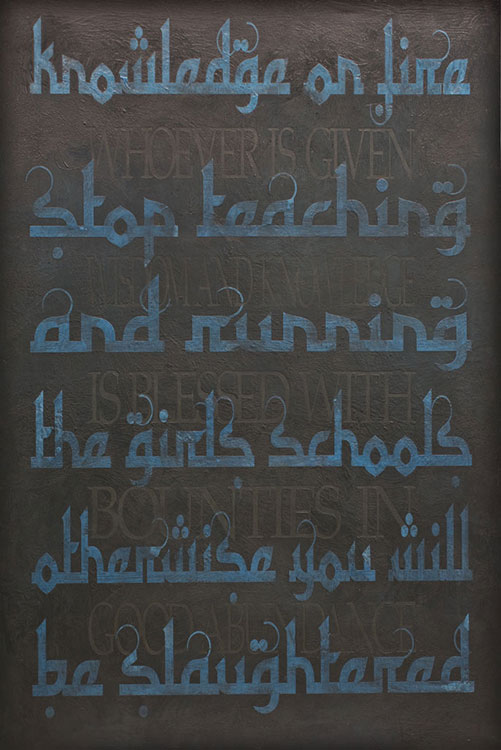 knowledge on fire
WHOEVER IS GIVEN
stop teaching
WISDOM AND KNOWLEDGE
and running
IS BLESSED WITH
the girls schools
BOUNTIES IN
otherwise you will
GOOD ABUNDANCE
be slaughtered